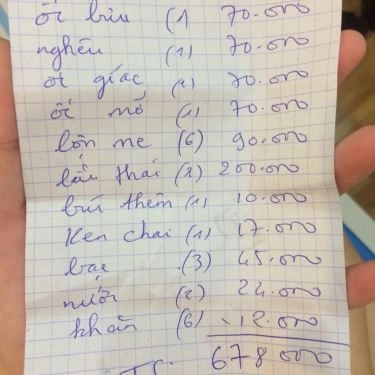 ốc bưu (1 70.000
nghêu (1) 70.000
ốc giác (1) 70.000
ốc mỡ (1) 70.000
lộn me (6) 90.000
lẩu thái (1) 200.000
bún thêm (1) 10.000
Ken chai (1) 17.000
bạc (3) 45.000
nước (2) 24.000
khăn (6) 12.000
678.000